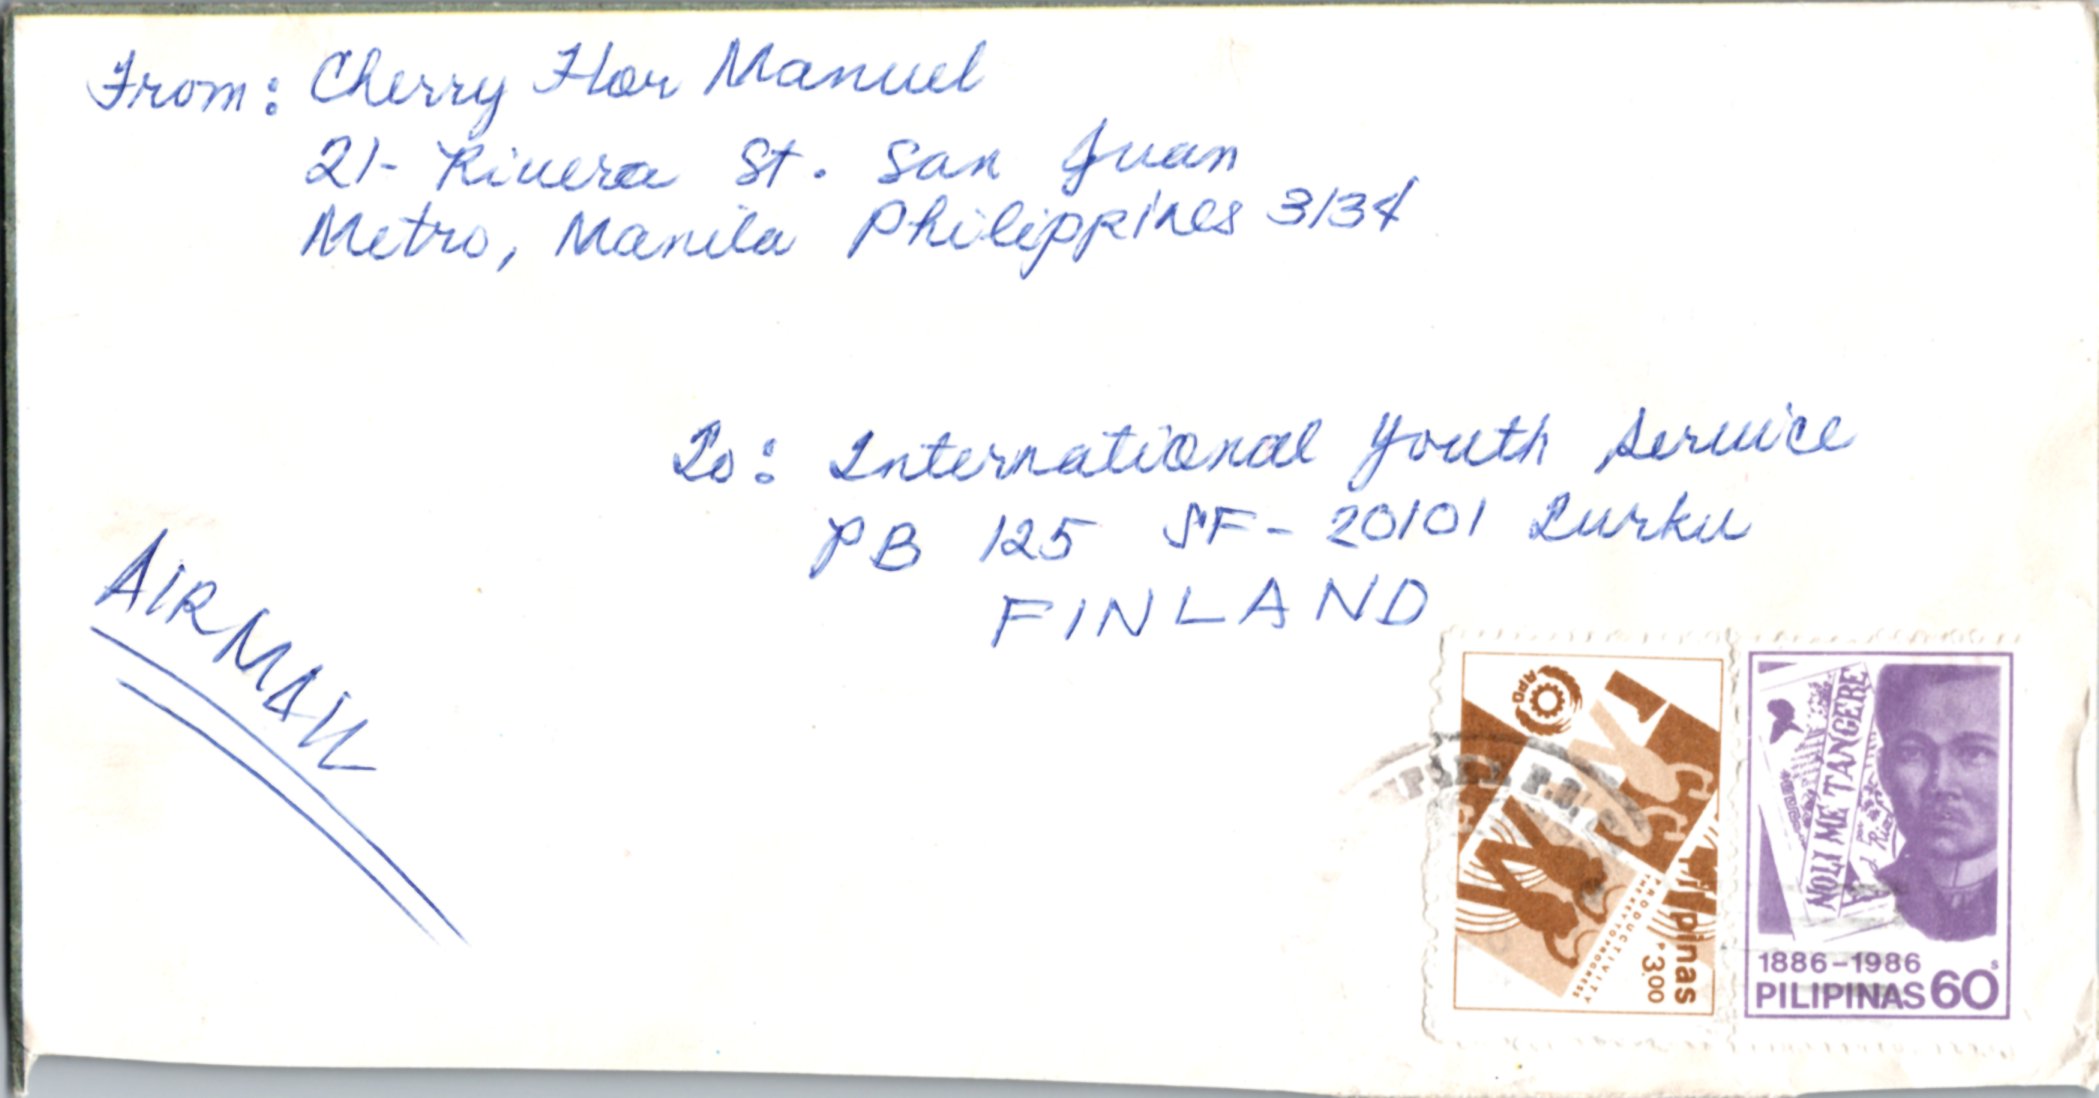 From: Cherry Flor Manuel
21- Rivera St. San Juan
Metro, Manila Philippines 3134
To: International Youth Service
PB 125 SF-20101 Turku
FINLAND
AIRMAIL
APO
PRODUCTIVITY
THE KEY TO PROGRESS
Pilipinas
P3.00
P.O.
NOLI ME TANGERE
Rizal
1886-1986
PILIPINAS 60s